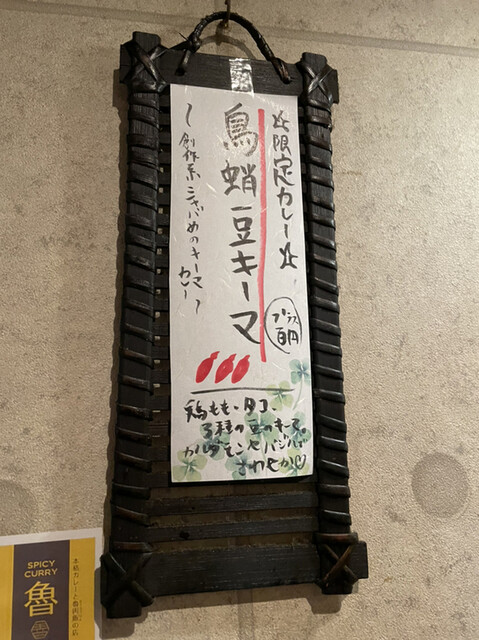 ☆限定カレー☆
鳥蛸豆キーマ
プラス
百円
〜創作系 こきざみめのキーマカレー〜
鶏もも、タコ、
3種の豆のキーマ。
カルダモンとバジルで
さわやか♡
SPICY
CURRY
魯
本格カレーと魯肉飯の店